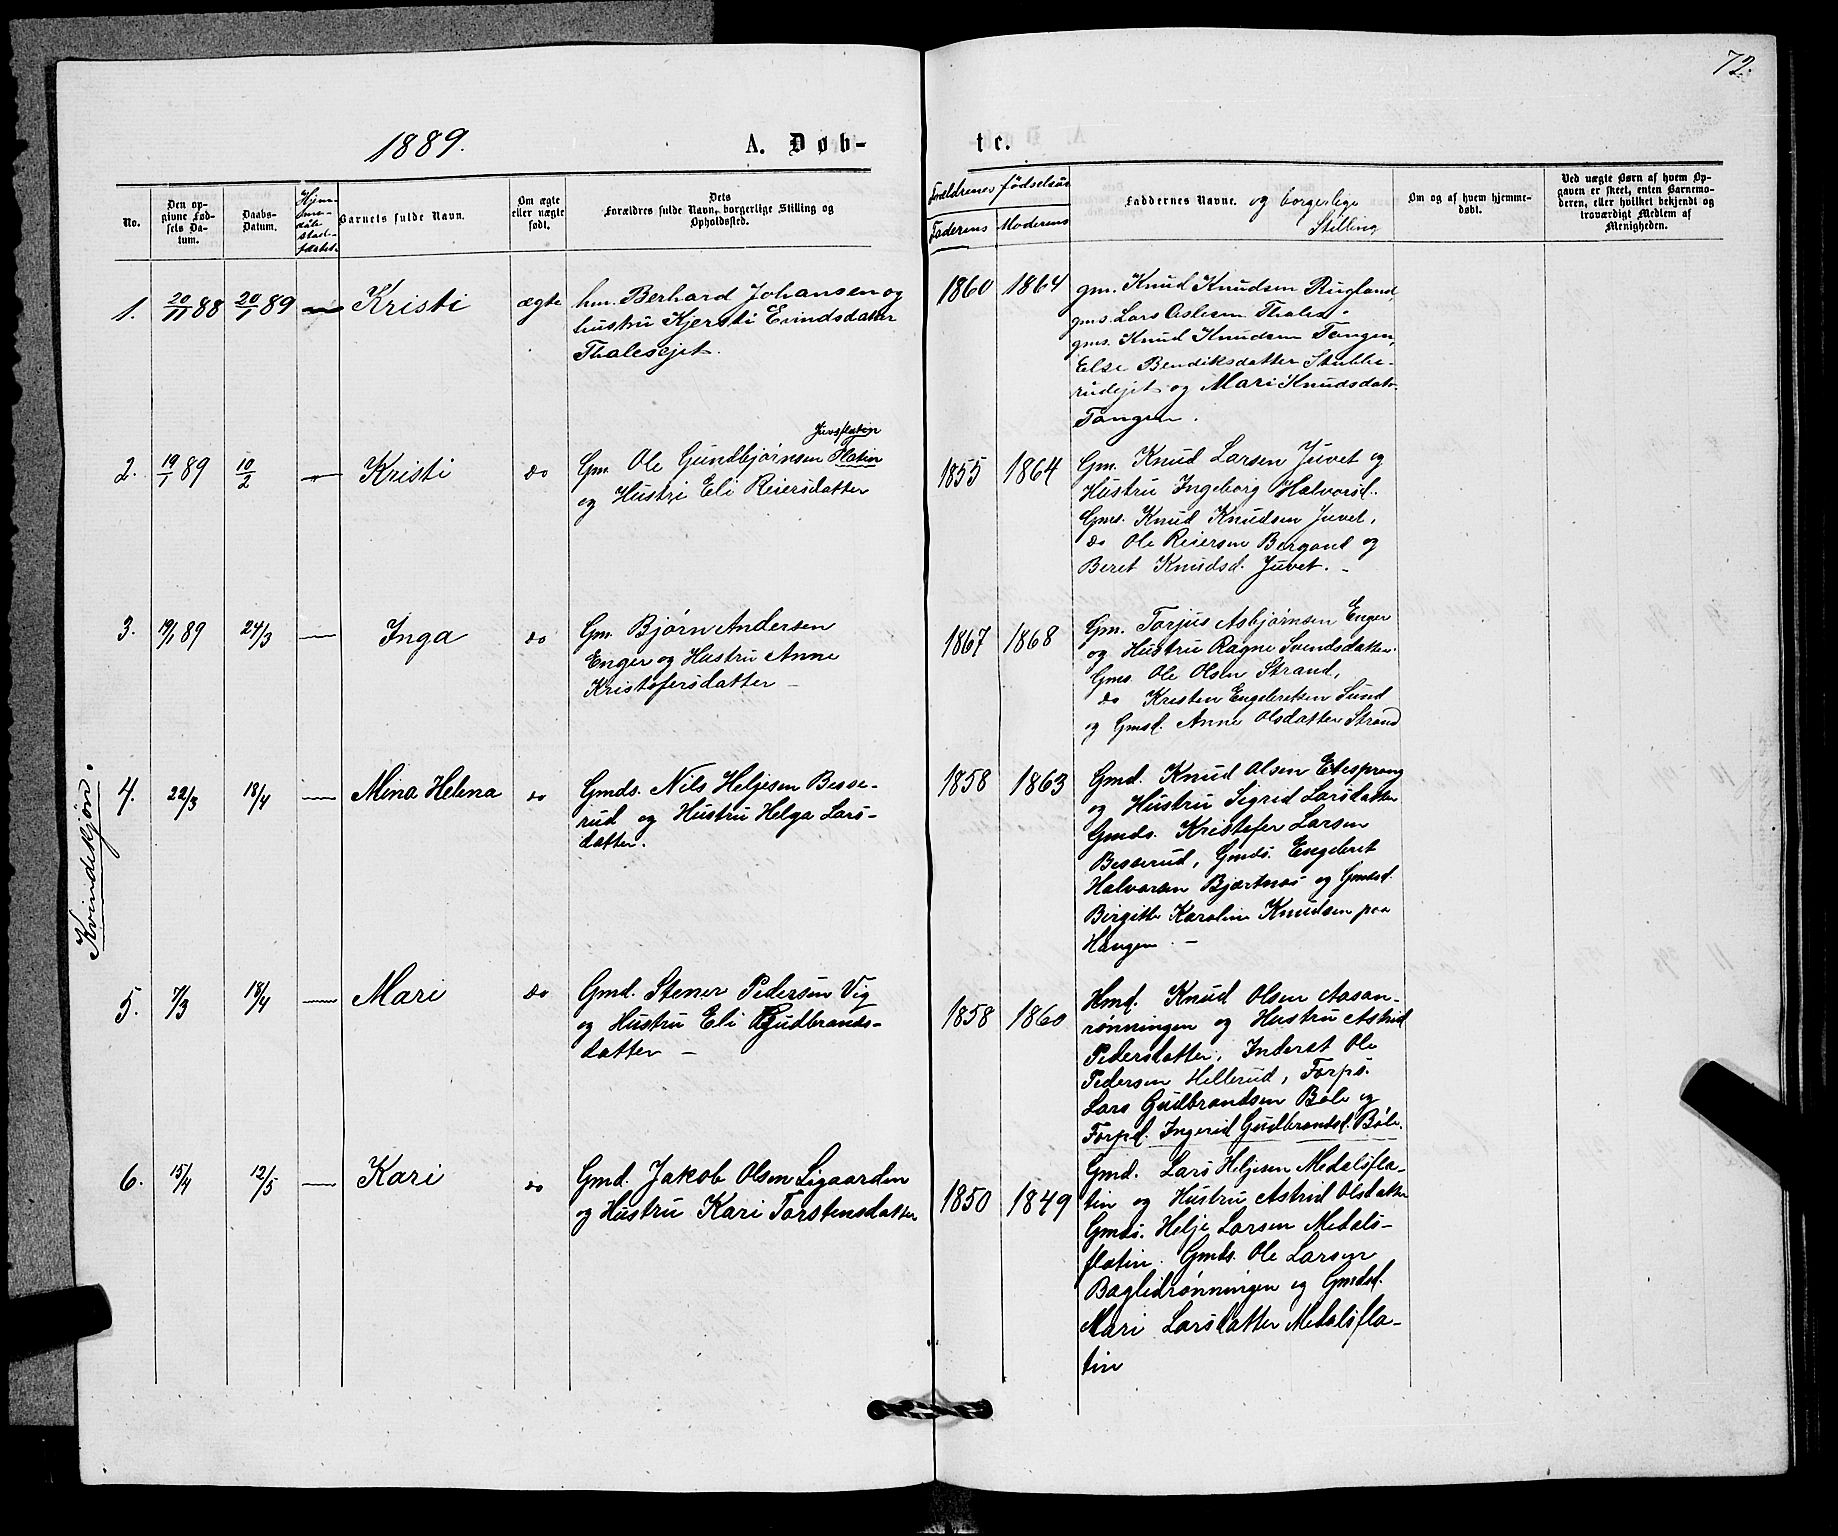 72.
1889.
A. Døb-
te.
Kvindekjøn.
No.
Den op-
givne Fød-
sels Da-
tum.
Daabs-
Datum.
Barnets fulde Navn.
Om ægte
eller uægte
født.
Dets
Forældres fulde Navn, borgerlige Stilling og
Opholdssted.
Forældrenes fødselsaar
Faderens
Moderens
Faddernes Navne. og borgerlige
Stilling
Om og af hvem hjemme-
døbt.
Ved uægte Børn af hvem Op-
gaven er skeet, enten Barnemo-
deren, eller hvilket bekjendt og
troværdigt Medlem af
Menigheden.
1. 20/11 88 20/1 89 — Kristi ægte
hm. Berhard Johansen og
hustru Kjersti Evindsdatter
Thalesejet.
1860 1864
gm. Knud Knudsen Rugland,
gms. Lars Aslesen Thalen.
gms. Knud Knudsen Tangen,
Else Bendiksdatter Stubbe-
rudejet og Mari Knudsdatr.
Tangen.
2. 19/1 89 10/2 — Kristi do
Juvsflatin
Gm. Ole Gundbjørnsen Flatin
og Hustri Eli Reiersdatter
1855 1864
Gm. Knud Larsen Juvet og
Hustru Ingeborg Halvorsd.
Gms. Knud Knudsen Juvet,
do Ole Reiersen Bergand og
Beret Knudsd. Juvet. -
3. 19/1 89 24/3 — Inga do
Gm. Bjørn Andersen
Enger og Hustru Anne
Kristofersdatter -
1867 1868
Gm. Torjus Asbjørnsen Enger
og Hustru Ragne Svendsdatter.
Gms. Ole Olsen Strand,
do Kristen Engebretsen Sund
og Gmsd. Anne Olsdatter Strand
4. 22/3 18/4 — Mina Helena do
Gmds. Nils Heljesen Besse-
rud og Hustru Helga Lars-
datter.
1858 1863
Gmd. Knud Olsen Elesprang
og Hustru Sigrid Larsdatter
Gmds. Kristofer Larsen
Besserud, Gmds. Engebret
Halvorsen Bjærtnæs og Gmdsd.
Birgitte Karoline Knudsen paa
Haugen. -
5. 7/3 18/4 — Mari do
Gmd. Stener Pedersen Vig
og Hustru Eli Gudbrands-
datter -
1858 1860
Hmd. Knud Olsen Aasan-
rønningen og Hustru Astrid
Pedersdatter, Inderst Ole
Pedersen Hillerud, Forps.
Lars Gudbrandsen Bøle og
Forpd. Ingerid Gudbrandsd. Bøle.
6. 15/4 12/5 — Kari do
Gmd. Jakob Olsen Ligaarden
og Hustru Kari Torstensdatter
1850 1849
Gmd. Lars Heljesen Medalsfla-
tin og Hustru Astrid Olsdatter
Gmds. Helje Larsen Medals-
flatin. Gmds. Ole Larsen
Baglidrønningen og Gmdsd.
Mari Larsdatter Medalsfla-
tin